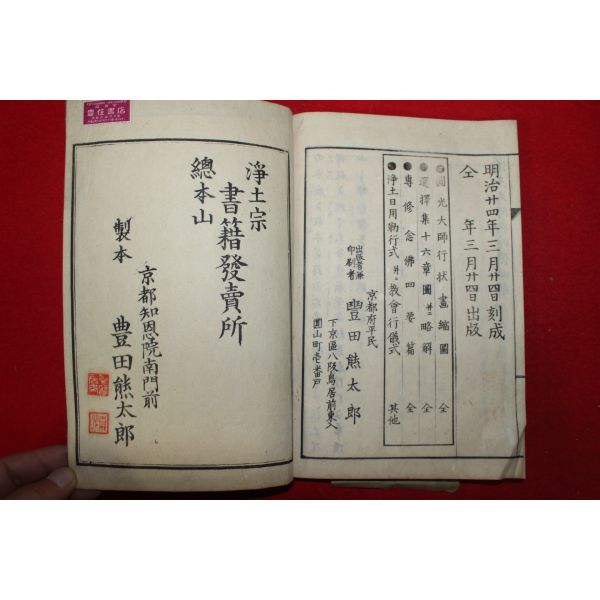 明治廿四年三月廿四日刻成
仝　年三月廿四日出版
圓光大師行状畫縮圖　仝
選擇集十六章圖并ニ略解　仝
専修念佛四要篇　仝
浄土日用勤行式并ニ教會行儀式　其他
京都府平民
出版者兼
印刷者
豐田熊太郎
下京區八阪鳥居前東入
圓山町壱番戸
淨土宗
總本山
書籍發賣所
京都知恩院南門前
製本　豊田熊太郎